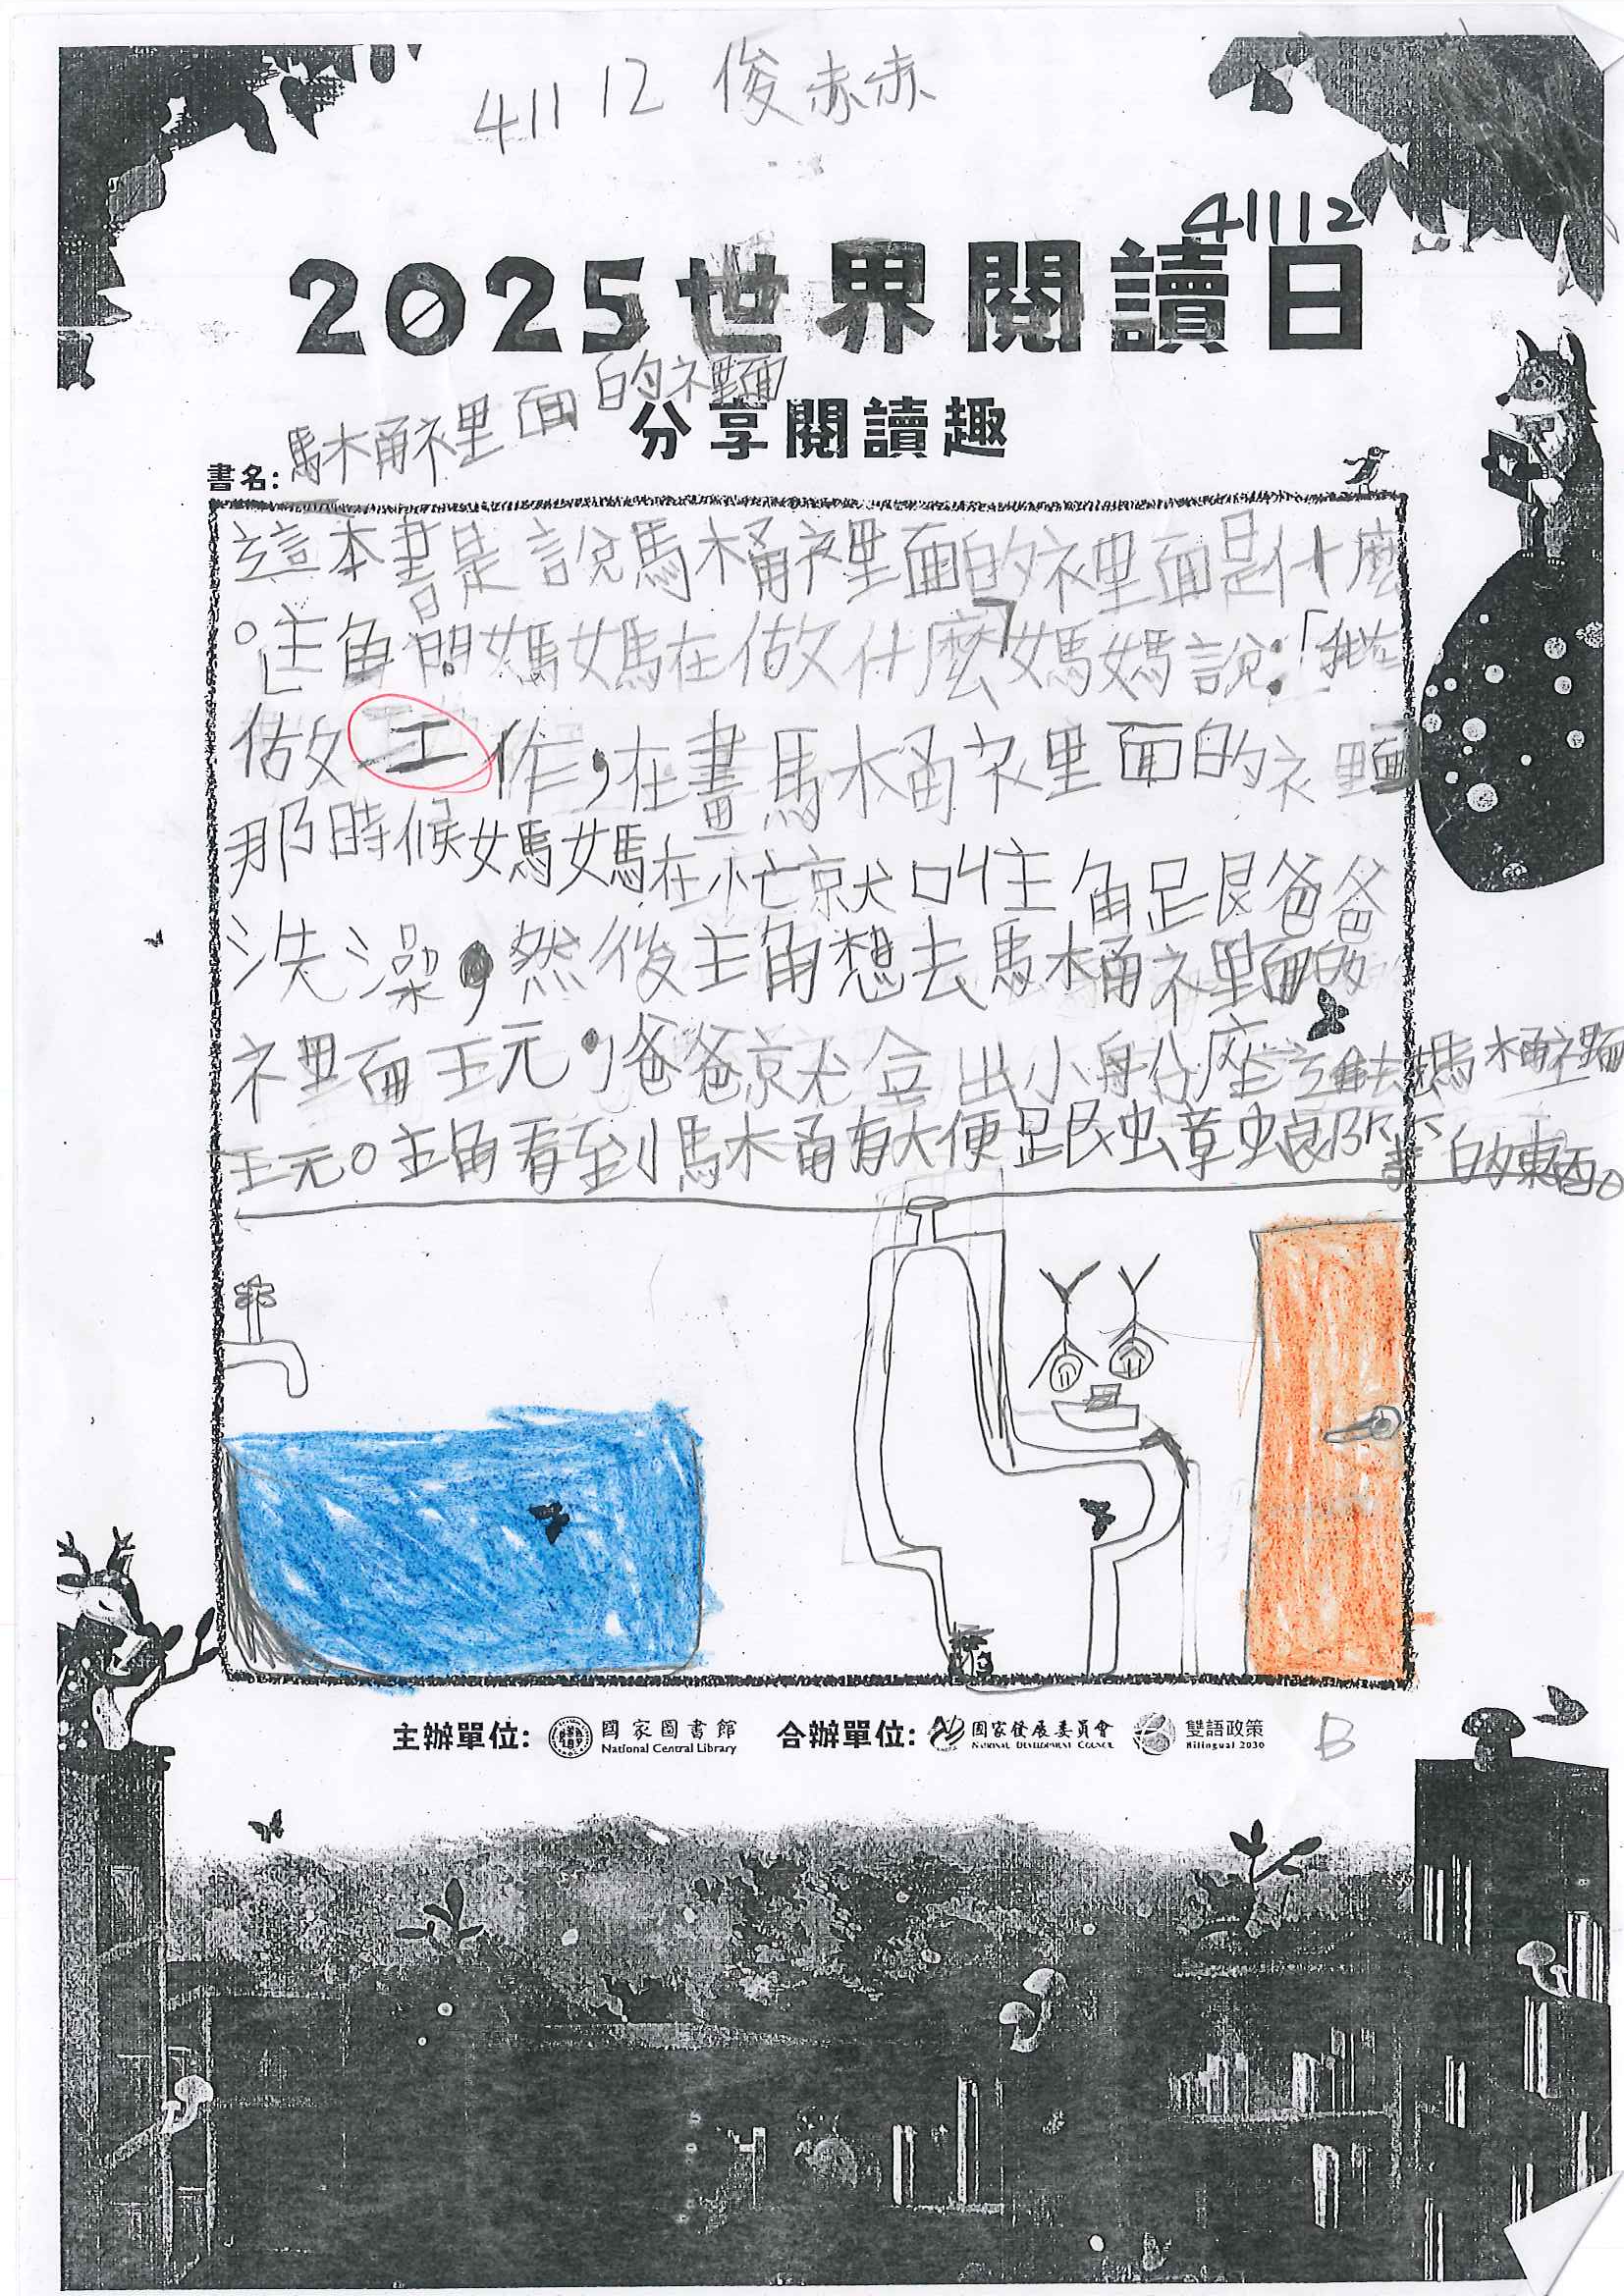 41112 俊赫
41112
2025世界閱讀日
分享閱讀趣
書名:馬桶裡面的裡面
這本書是說馬桶裡面的裡面是什麼
。主角問媽媽在做什麼?媽媽說:「我在
做工作,在畫馬桶裡面的裡面
那時候媽媽在忙就叫主角跟爸爸
洗澡,然後主角想去馬桶裡面的
裡面玩,爸爸就拿出小船坐進去馬桶裡面
玩。主角看到馬桶有大便跟蟑螂那 的東西。
主辦單位: 國家圖書館 National Central Library 合辦單位: 國家發展委員會 National Development Council 雙語政策 Bilingual 2030
B